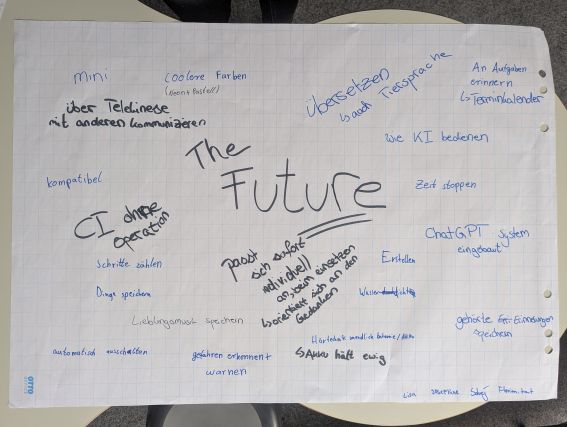 mini
coolere Farben
(Neon + Pastell)
über Telekinese
mit anderen kommunizieren
Übersetzen
↳ auch Tiersprache
An Aufgaben
erinnern
↳ Terminkalender
wie KI bedienen
The
Future
kompatibel
Zeit stoppen
CI ohne
operation
ChatGPT System
eingebaut
passt
sich sofort
individuell
an, beim einsetzen
↳ orientiert sich an den
Gedanken
Schritte zählen
Erstellen
Dinge speichern
Lieblingsmusik speichern
gehörte Erinnerungen
speichern
automatisch ausschalten
gefahren erkennen +
warnen
↳ Akku hält ewig
Lisa
OTTO